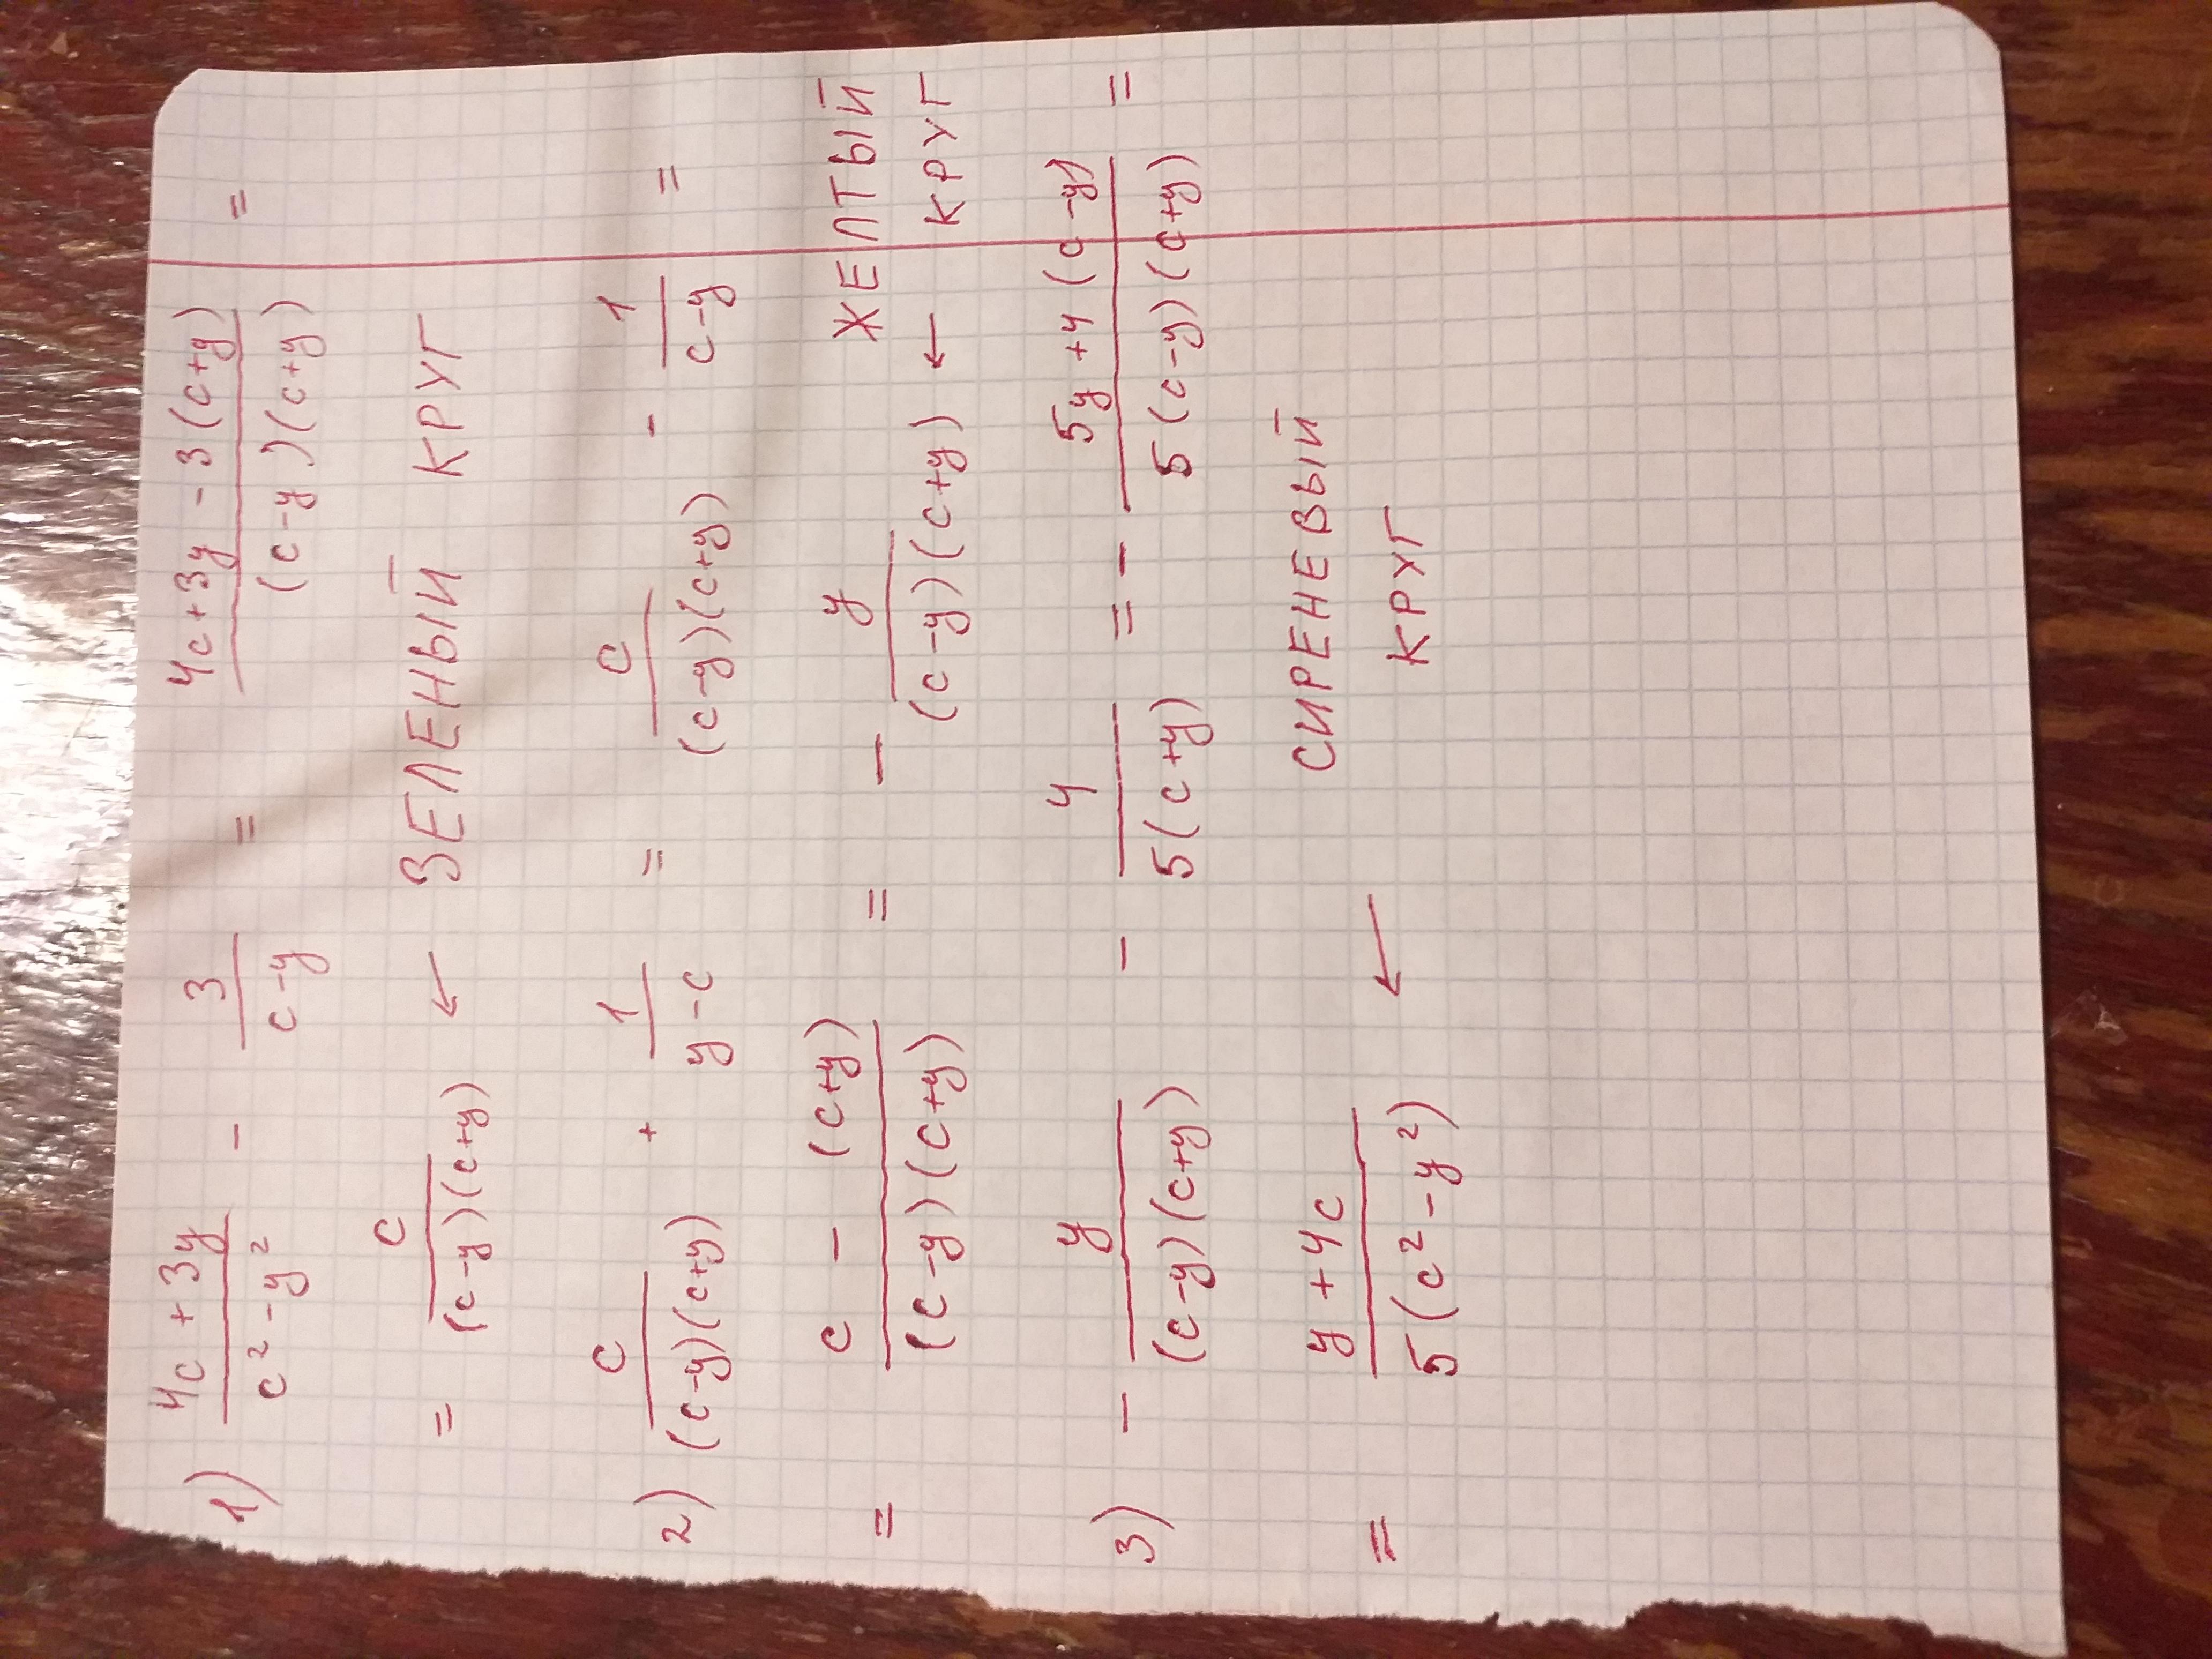 1) (4c + 3y)/(c² - y²) - 3/(c-y) = (4c+3y - 3(c+y))/((c-y)(c+y)) =
= c/((c-y)(c+y)) ← ЗЕЛЕНЫЙ КРУГ
2) c/((c-y)(c+y)) + 1/(y-c) = c/((c-y)(c+y)) - 1/(c-y) =
= (c - (c+y))/((c-y)(c+y)) = - y/((c-y)(c+y)) ← ЖЕЛТЫЙ КРУГ
3) - y/((c-y)(c+y)) - 4/(5(c+y)) = - (5y +4(c-y))/(5(c-y)(c+y)) =
= (y + 4c)/(5(c²-y²)) ← СИРЕНЕВЫЙ КРУГ